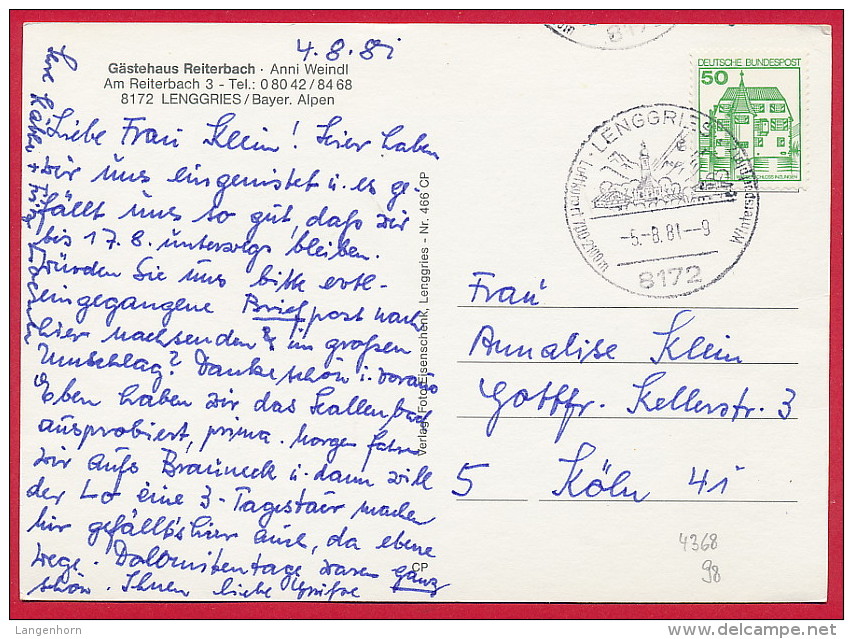 4.8.81
Gästehaus Reiterbach · Anni Weindl
Am Reiterbach 3 - Tel.: 0 80 42 / 84 68
8172 LENGGRIES / Bayer. Alpen
Liebe Frau Klein! Hier haben
wir uns eingenistet u. es ge-
fällt uns so gut, daß wir
bis 17.8. unterwegs bleiben.
Würden Sie uns bitte evtl.
eingegangene Briefpost nach
hier nachsenden im großen
Umschlag? Dankeschön i. voraus
Eben haben wir das Hallenbad
ausprobiert, prima. Morgen fahren
wir aufs Brauneck u. dann will
der Lo eine 3-Tagestour machen
mir gefällt's hier auch, da ebene
Wege. Dolomitentage waren ganz
schön. Ihnen liebe Grüße
Ihre
Verlag: Foto Eisenschenk, Lenggries - Nr. 466 CP
CP
8172
DEUTSCHE BUNDESPOST
50
WASSERSCHLOSS INZLINGEN
LENGGRIES
Luftkurort 700-2100m
Wintersportplatz
-5.-8.81.--9
8172
Frau
Annalise Klein
Gottfr. Kellerstr. 3
5 Köln 41
4368
98
© Langenhorn
http://www.delcampe.net